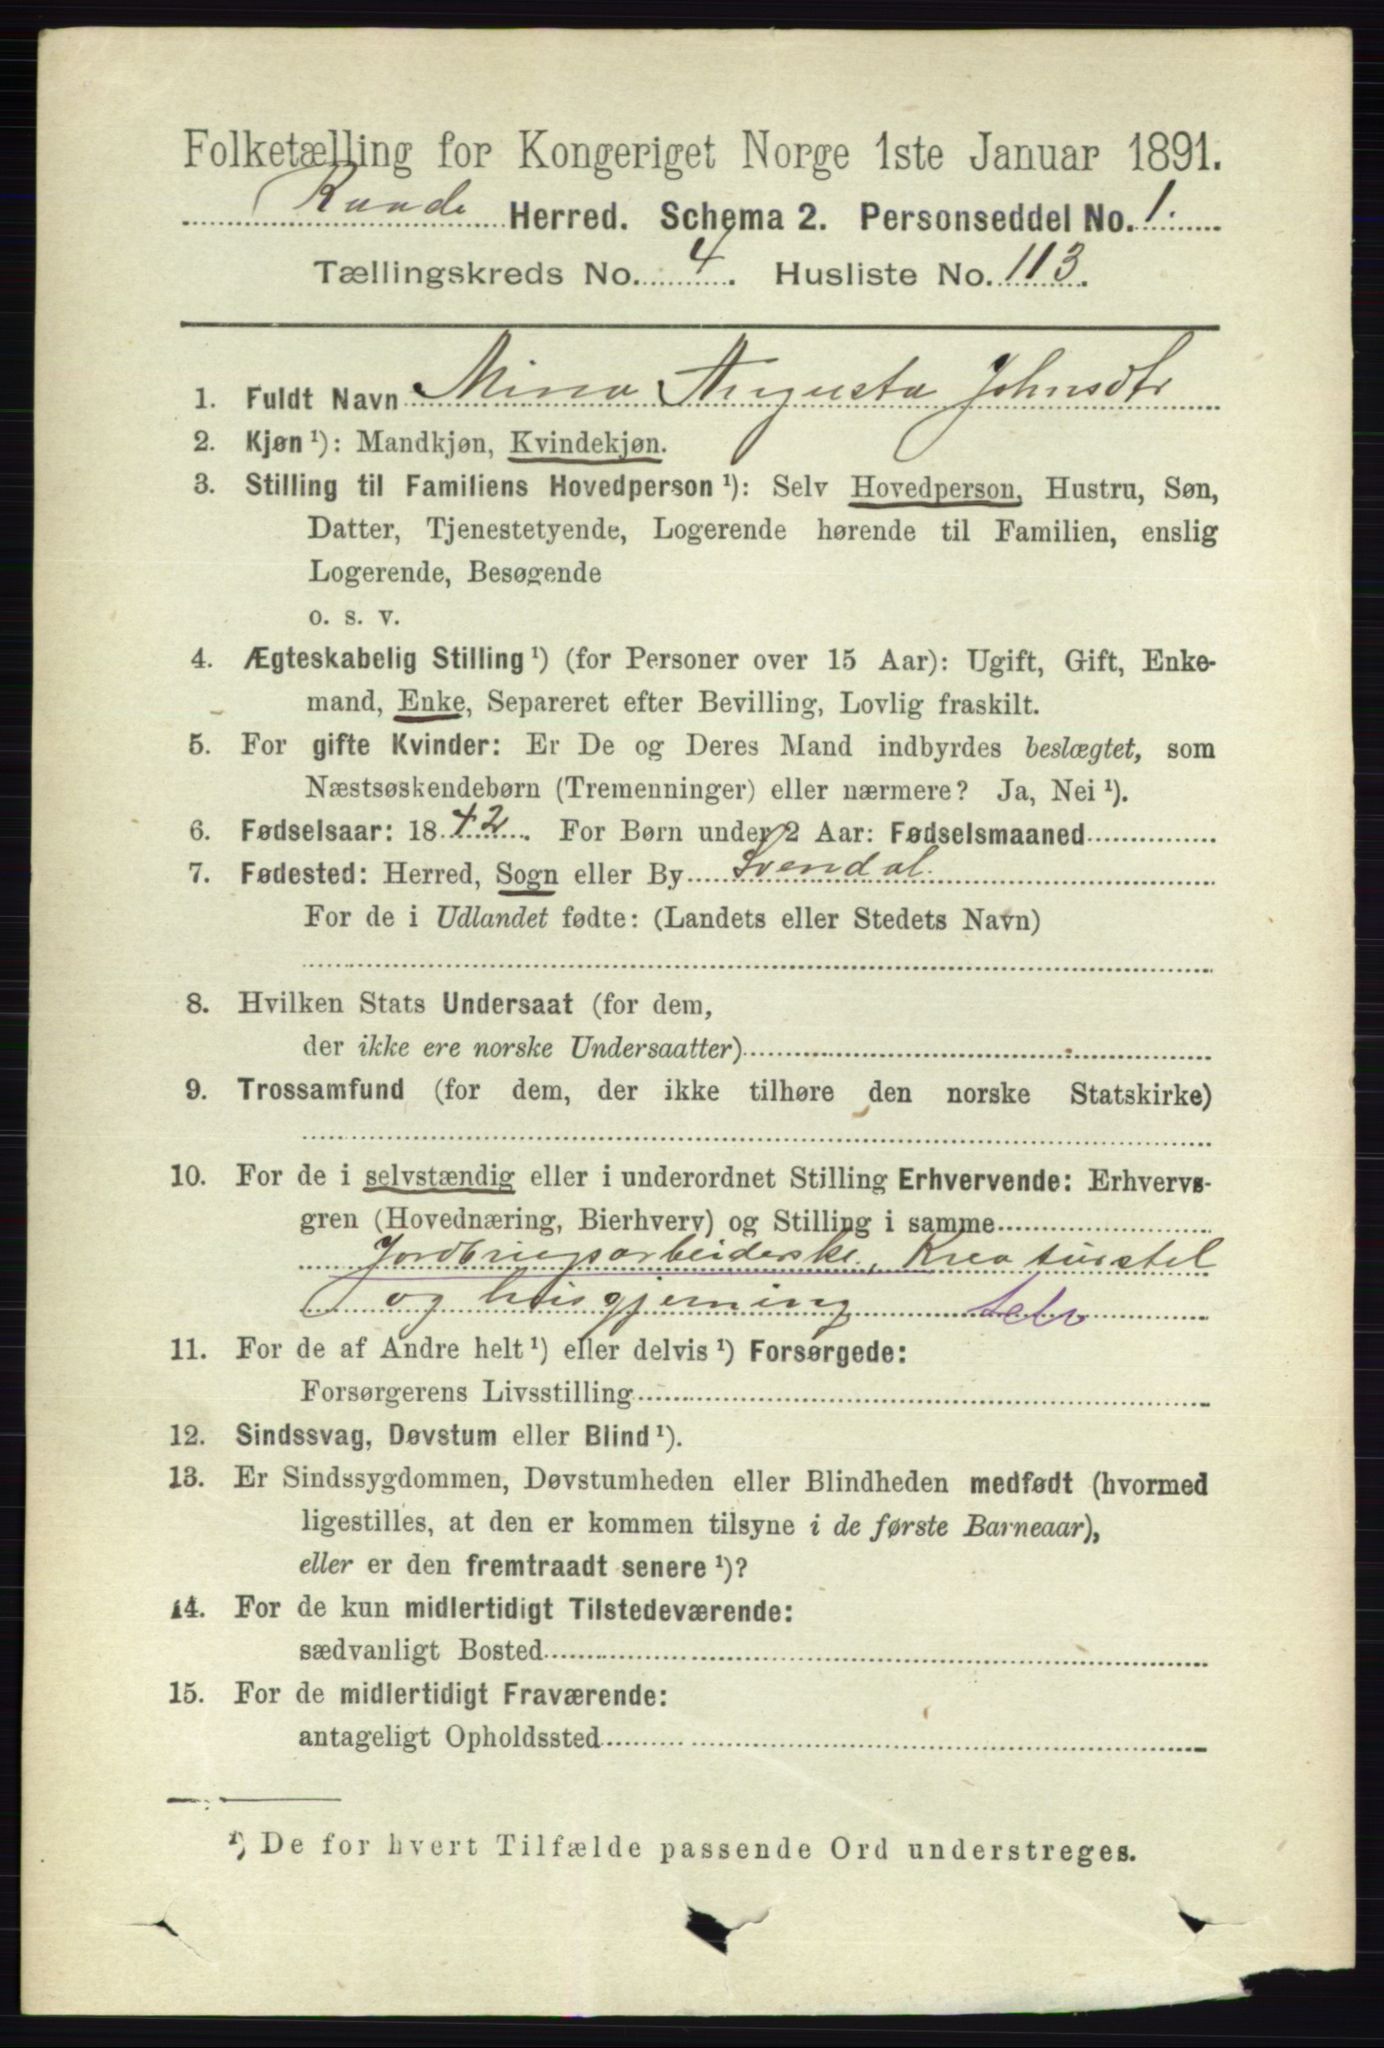 Folketælling for Kongeriget Norge 1ste Januar 1891.
Raade Herred. Schema 2. Personseddel No. 1.
Tællingskreds No. 4. Husliste No. 113.
1. Fuldt Navn Mina Augusta Johnsdtr
2. Kjøn ¹): Mandkjøn, Kvindekjøn.
3. Stilling til Familiens Hovedperson ¹): Selv Hovedperson, Hustru, Søn,
Datter, Tjenestetyende, Logerende hørende til Familien, enslig
Logerende, Besøgende
o. s. v.
4. Ægteskabelig Stilling ¹) (for Personer over 15 Aar): Ugift, Gift, Enke-
mand, Enke, Separeret efter Bevilling, Lovlig fraskilt.
5. For gifte Kvinder: Er De og Deres Mand indbyrdes beslægtet, som
Næstsøskendebørn (Tremenninger) eller nærmere? Ja, Nei ¹).
6. Fødselsaar: 1842. For Børn under 2 Aar: Fødselsmaaned
7. Fødested: Herred, Sogn eller By Svendal.
For de i Udlandet fødte: (Landets eller Stedets Navn)
8. Hvilken Stats Undersaat (for dem,
der ikke ere norske Undersaatter)
9. Trossamfund (for dem, der ikke tilhøre den norske Statskirke)
10. For de i selvstændig eller i underordnet Stilling Erhvervende: Erhvervs-
gren (Hovednæring, Bierhverv) og Stilling i samme
Jordbrugsarbeiderske, Kreaturstel
og husgjerning Selv
11. For de af Andre helt ¹) eller delvis ¹) Forsørgede:
Forsørgerens Livsstilling
12. Sindssvag, Døvstum eller Blind ¹).
13. Er Sindssygdommen, Døvstumheden eller Blindheden medfødt (hvormed
ligestilles, at den er kommen tilsyne i de første Barneaar),
eller er den fremtraadt senere ¹)?
14. For de kun midlertidigt Tilstedeværende:
sædvanligt Bosted
15. For de midlertidigt Fraværende:
antageligt Opholdssted
¹) De for hvert Tilfælde passende Ord understreges.